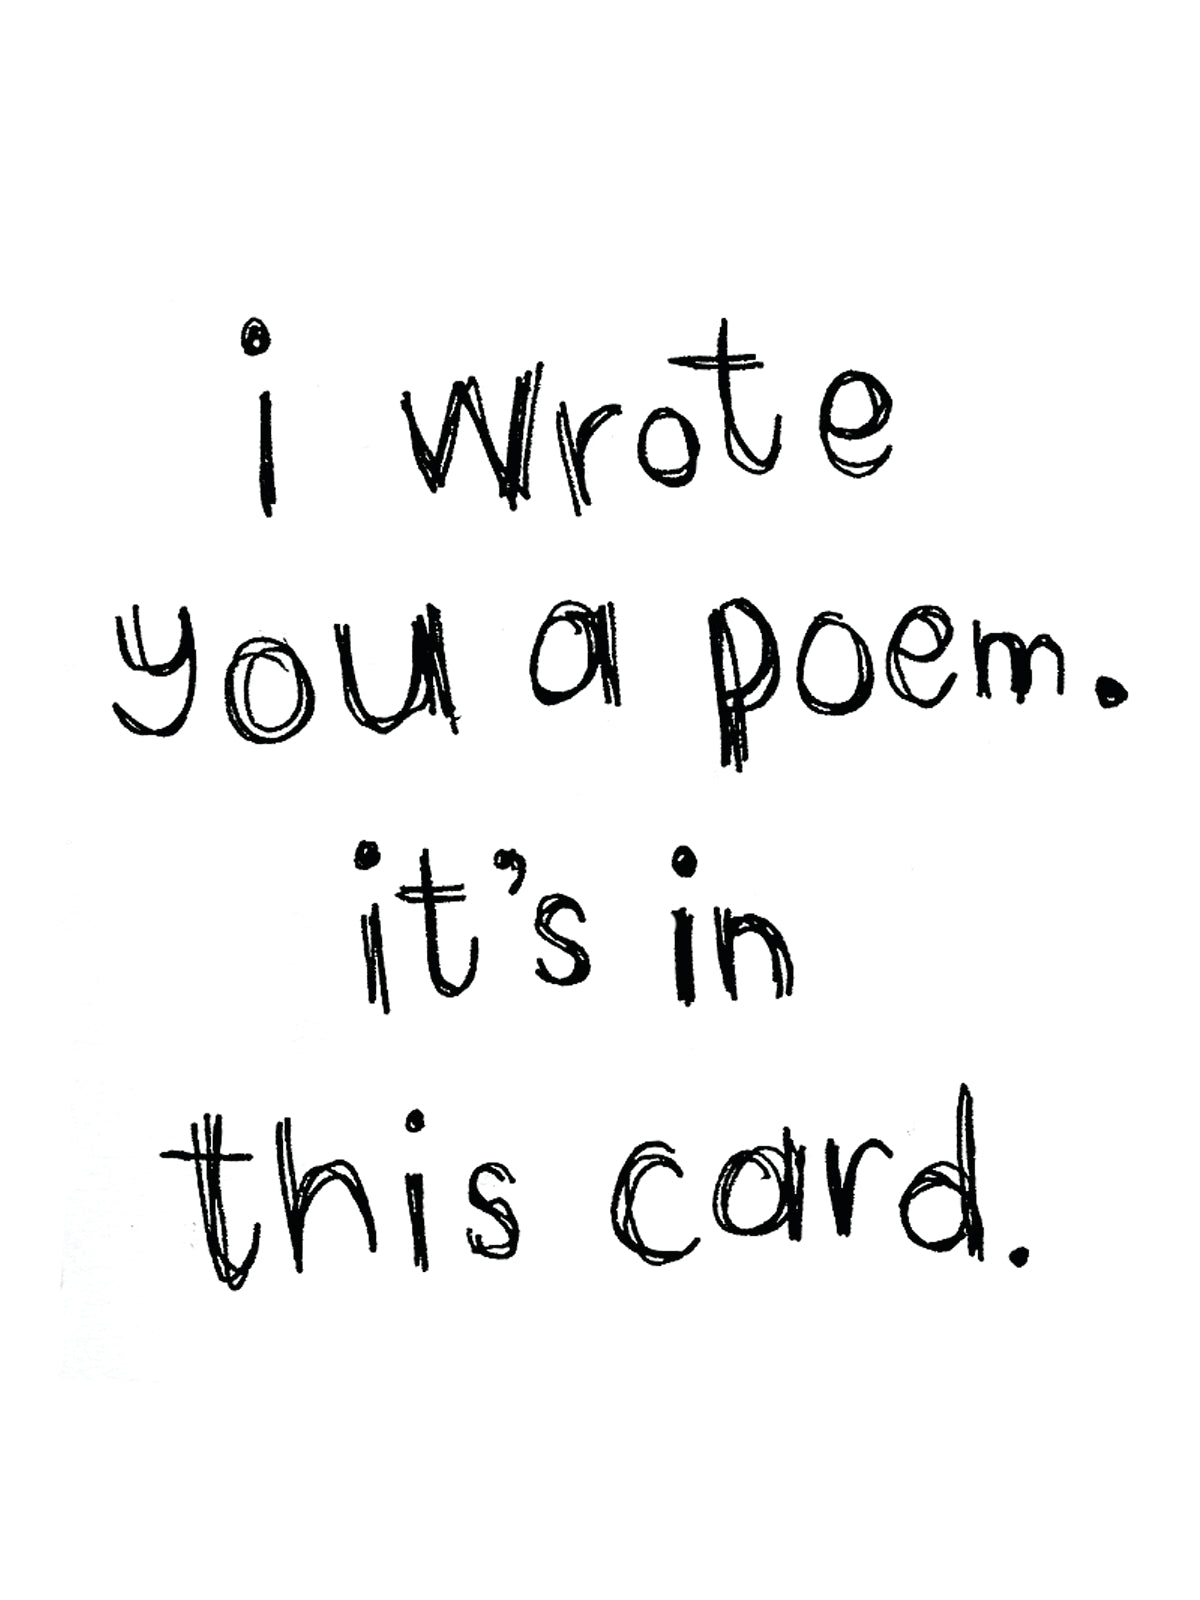 i wrote
you a poem.
it's in
this card.